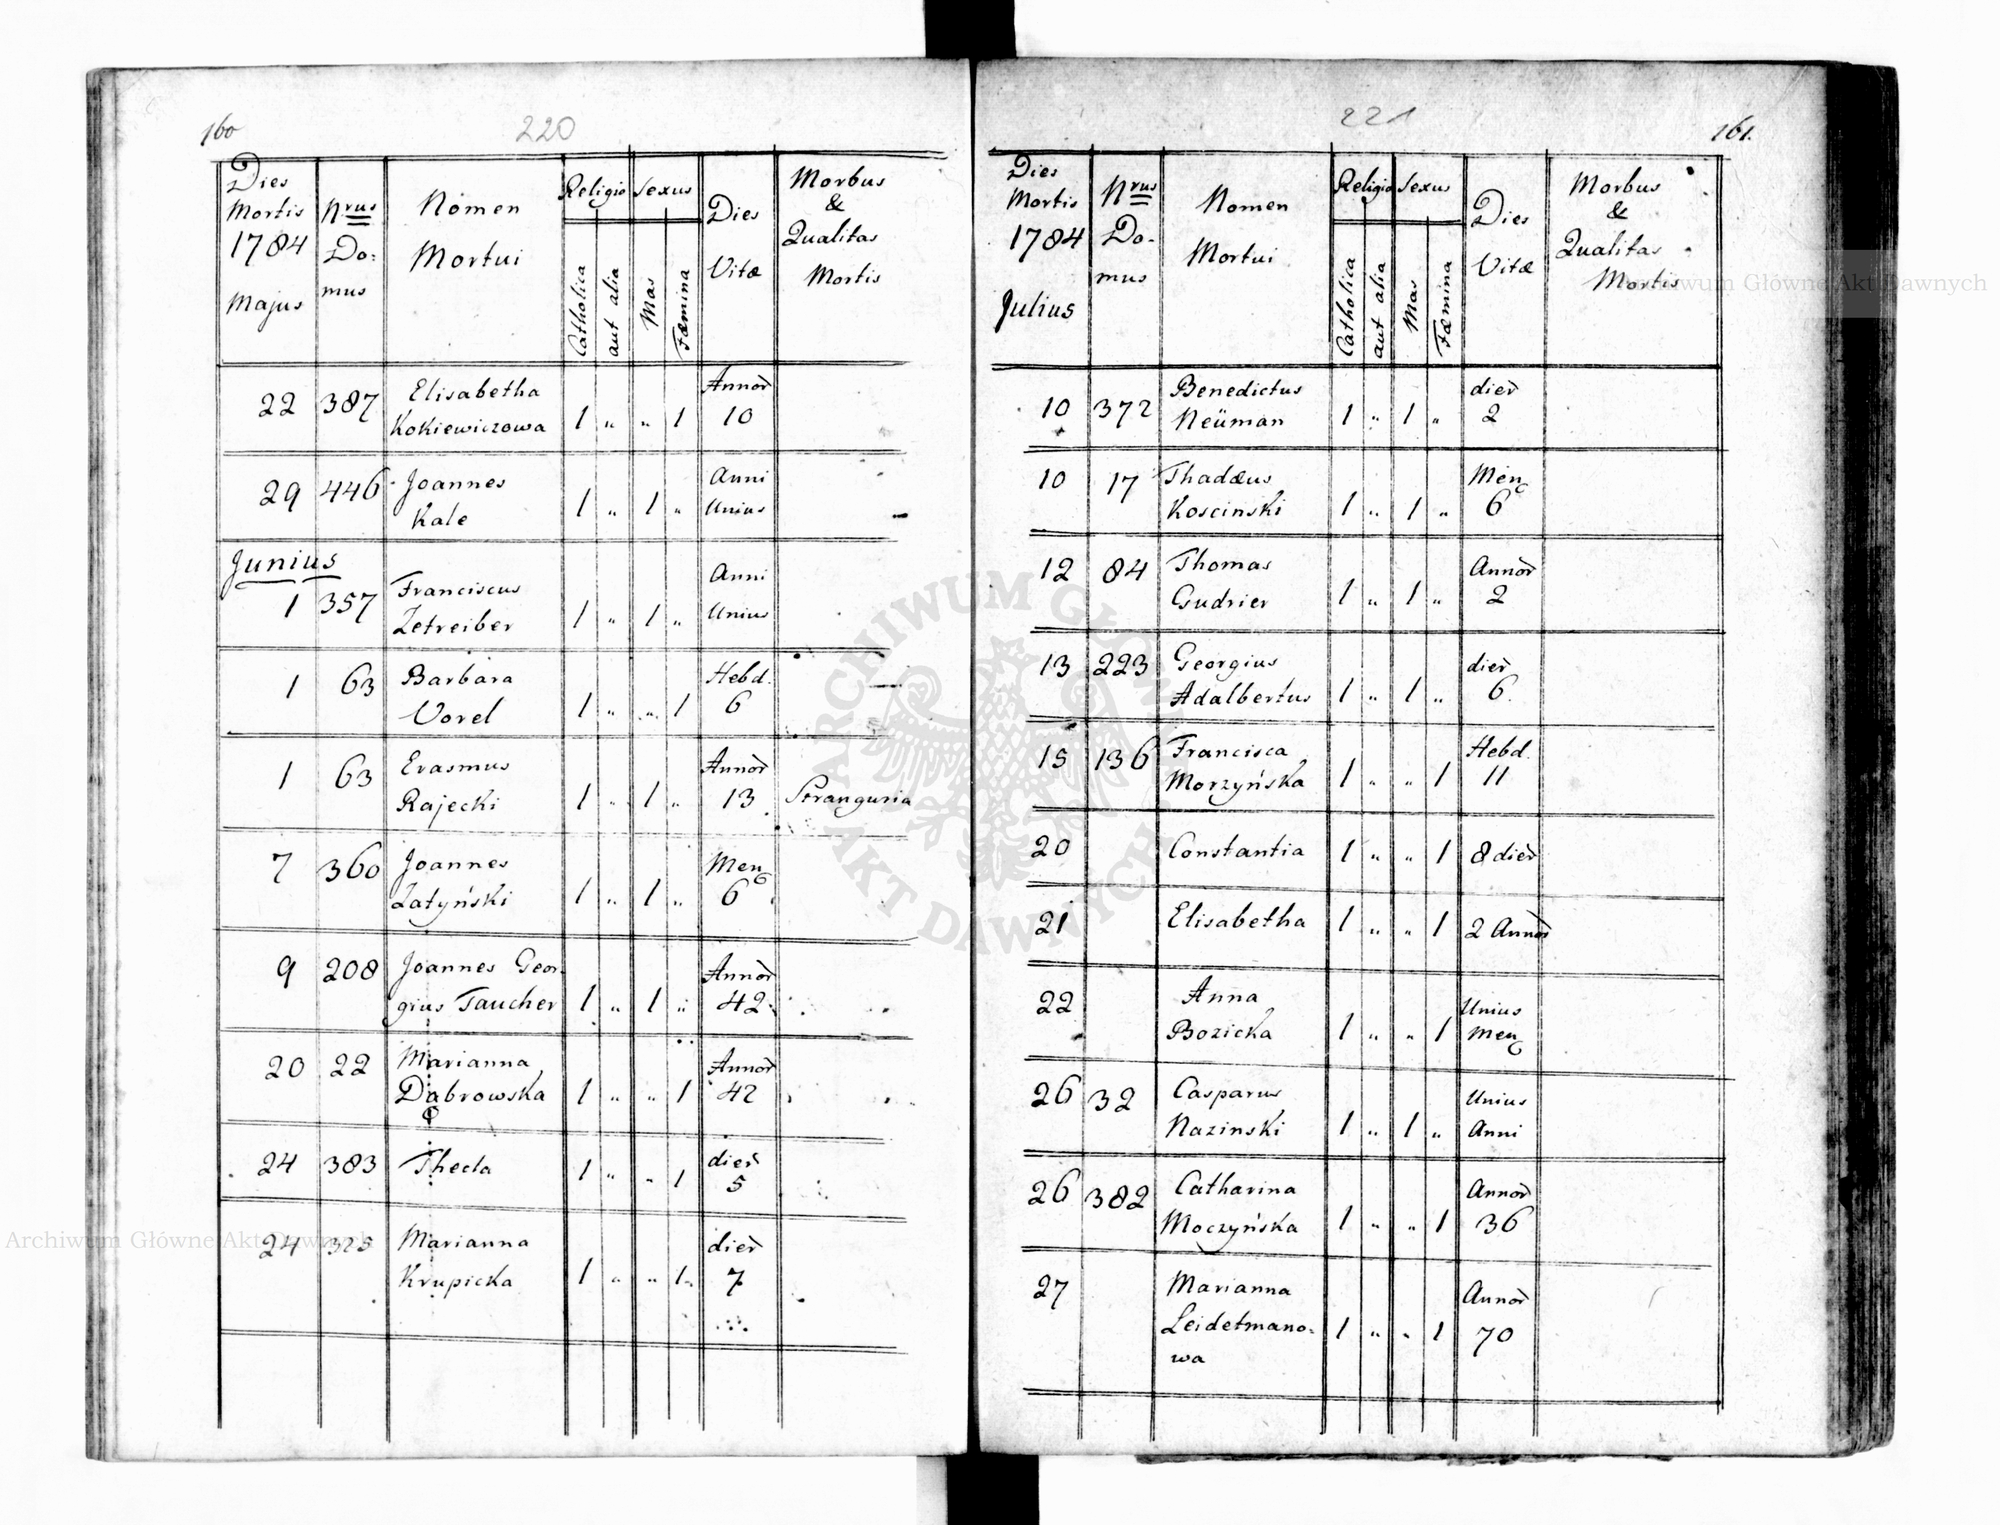 160
220
Dies Mortis 1784 Majus
Nrus Do: mus
Nomen Mortui
Religio
Sexus
Catholica
aut alia
Mas
Fæmina
Dies Vitæ
Morbus & Qualitas Mortis
22 387 Elisabetha Annor̀
Kokiewiczowa 1 " " 1 10
29 446 Joannes Anni
Kale 1 " 1 " Unius
Junius
1 357 Franciscus Anni
Zetreiber 1 " 1 " Unius
1 63 Barbara Hebd.
Vorel 1 " " 1 6
1 63 Erasmus Annor̀
Rajecki 1 " 1 " 13 Stranguria
7 360 Joannes Men
Zatyński 1 " 1 " 6
9 208 Joannes Geor- Annor̀
gius Taucher 1 " 1 " 42
20 22 Marianna Annor̀
Dąbrowska 1 " " 1 42
24 383 Thecla 1 " " 1 dier̀
5
24 325 Marianna dier̀
Krupicka 1 " " 1 7
221
161.
Dies Mortis 1784 Julius
Nrus Do- mus
Nomen Mortui
Religio
Sexus
Catholica
aut alia
Mas
Fæmina
Dies Vitæ
Morbus & Qualitas Mortis
10 372 Benedictus dier̀
Neüman 1 " 1 " 2
10 17 Thadæus Men
Koscinski 1 " 1 " 6
12 84 Thomas Annor̀
Gudrier 1 " 1 " 2
13 223 Georgius dier̀
Adalbertus 1 " 1 " 6
15 136 Francisca Hebd.
Morzyńska 1 " " 1 11
20 Constantia 1 " " 1 8 dier̀
21 Elisabetha 1 " " 1 2 Annor̀
22 Anna Unius
Bozicka 1 " " 1 Men
26 32 Casparus Unius
Nazinski 1 " 1 " Anni
26 382 Catharina Annor̀
Moczyńska 1 " " 1 36
27 Marianna Annor̀
Leidetmano= 1 " " 1 70
wa
ARCHIWUM GŁÓWNE AKT DAWNYCH
Archiwum Główne Akt Dawnych
Archiwum Główne Akt Dawnych